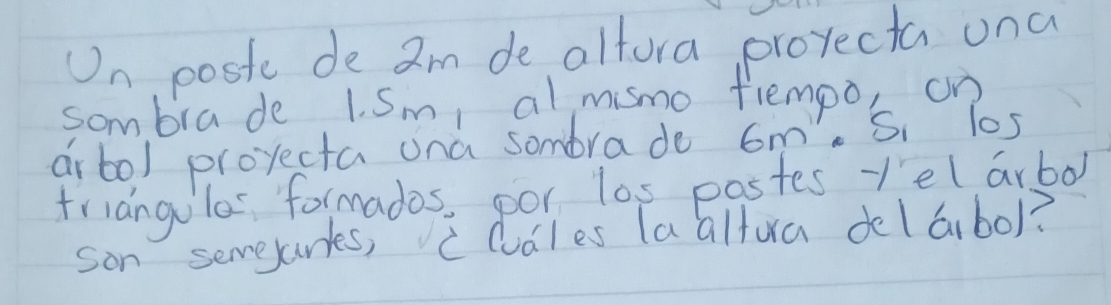 Un poste de 2m de altura proyecta una
sombra de 1.5m, al mismo tiempo, un
árbol proyecta una sombra de 6m. Si los
triángulos formados por los postes y el árbol
son semejantes, ¿Cuál es la altura del árbol?